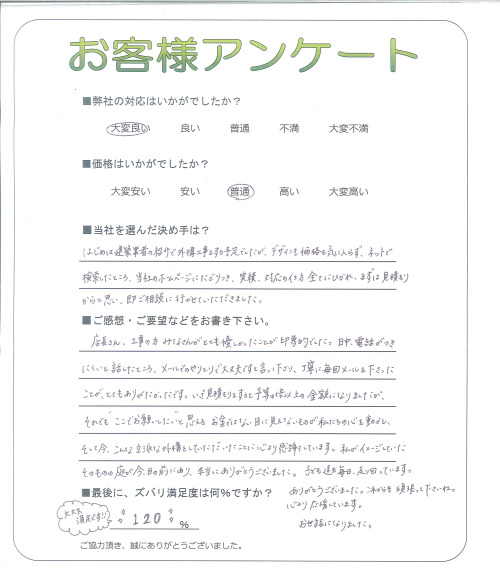 お客様アンケート
■弊社の対応はいかがでしたか？
大変良い 良い 普通 不満 大変不満
■価格はいかがでしたか？
大変安い 安い 普通 高い 大変高い
■当社を選んだ決め手は？
はじめは建築業者の紹介で外構工事をする予定でしたが、デザインも価格も気に入らず、ネットで
検索したところ、当社のホームページにたどりつき、実績、対応の仕方全てにひかれ、まずは見積もり
からと思い、即ご相談に行かせていただきました。
■ご感想・ご要望などをお書き下さい。
店長さん、工事の方みなさんがとても優しかったことが印象的でした。日中、電話がつき
にくいと話したところ、メールでのやりとりで大丈夫ですと言って下さり、丁寧に毎回メールを下さった
ことが、とてもありがたかったです。いざ見積もりをすると予算の倍以上の金額になりましたが、
それでも"ここでお願いしたい"と思える お金ではない目に見えないものが私たちの心を動かし、
そして今、こんな立派な外構をしていただいたことに心より感謝しています。私がイメージしていた
そのものの庭が今、目の前にあり、本当にありがとうございました。子ども達も毎日、走り回っています。
■最後に、ズバリ満足度は何％ですか？
ありがとうございました。これからも頑張って下さいね。
心より応援しています。
お世話になりました。
大大大
満足です!!
120 %
ご協力頂き、誠にありがとうございました。